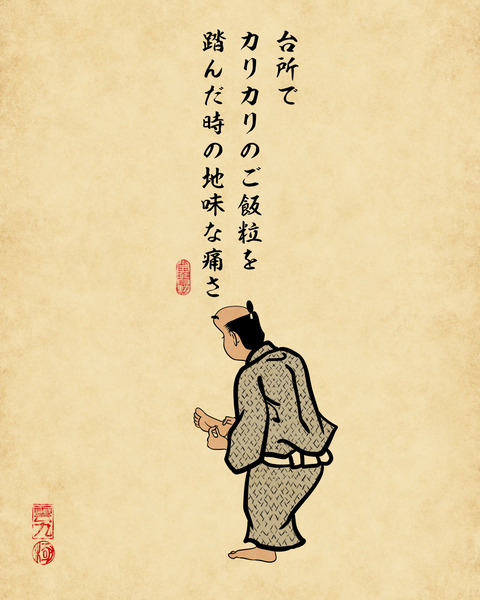 台所で
カリカリのご飯粒を
踏んだ時の地味な痛さ